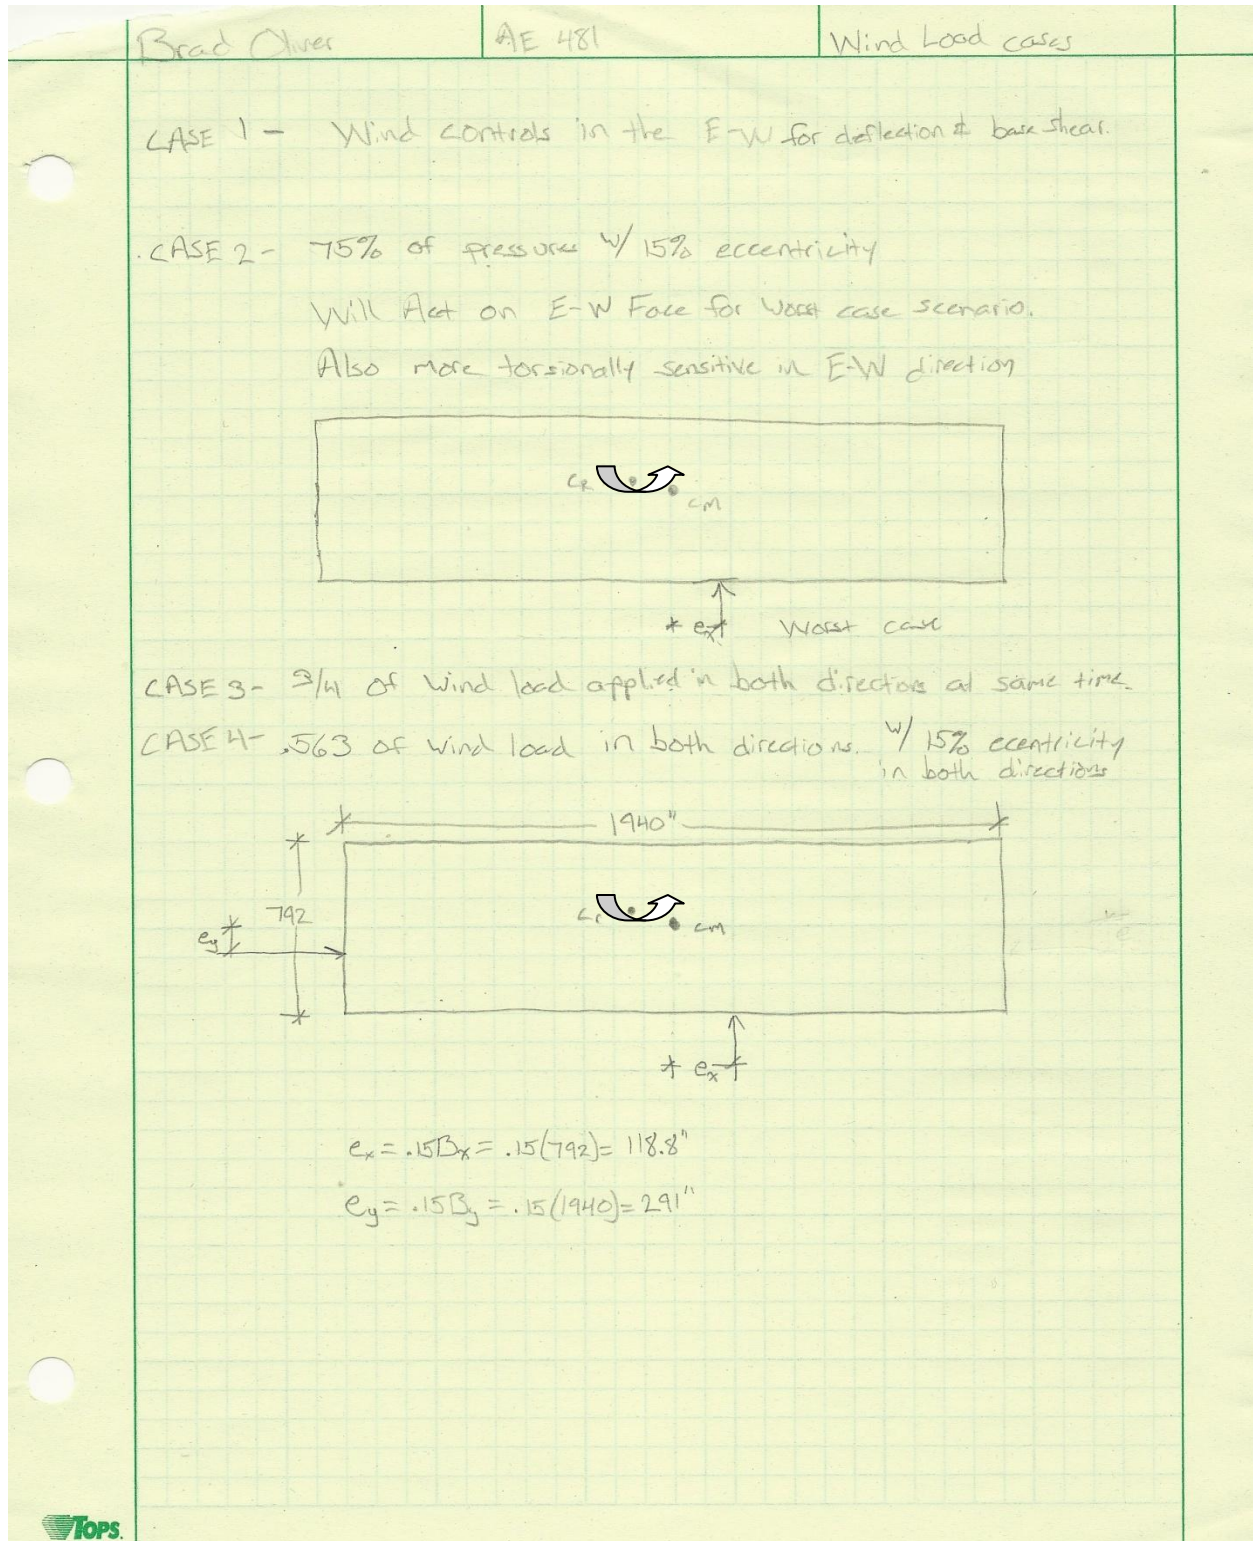 Brad Oliver
AE 481
Wind Load cases
CASE 1 - Wind controls in the E-W for deflection & base shear.
CASE 2 - 75% of pressures w/ 15% eccentricity
Will Act on E-W Face for Worst case scenario.
Also more torsionally sensitive in E-W direction
CR
CM
ex Worst case
CASE 3 - 3/4 of Wind load applied in both directions at same time.
CASE 4 - .563 of wind load in both directions. w/ 15% ecentricity
in both directions
1940"
792
ey
Cr
CM
ex
ex = .15Bx = .15(792) = 118.8"
ey = .15By = .15(1940) = 291"
TOPS.